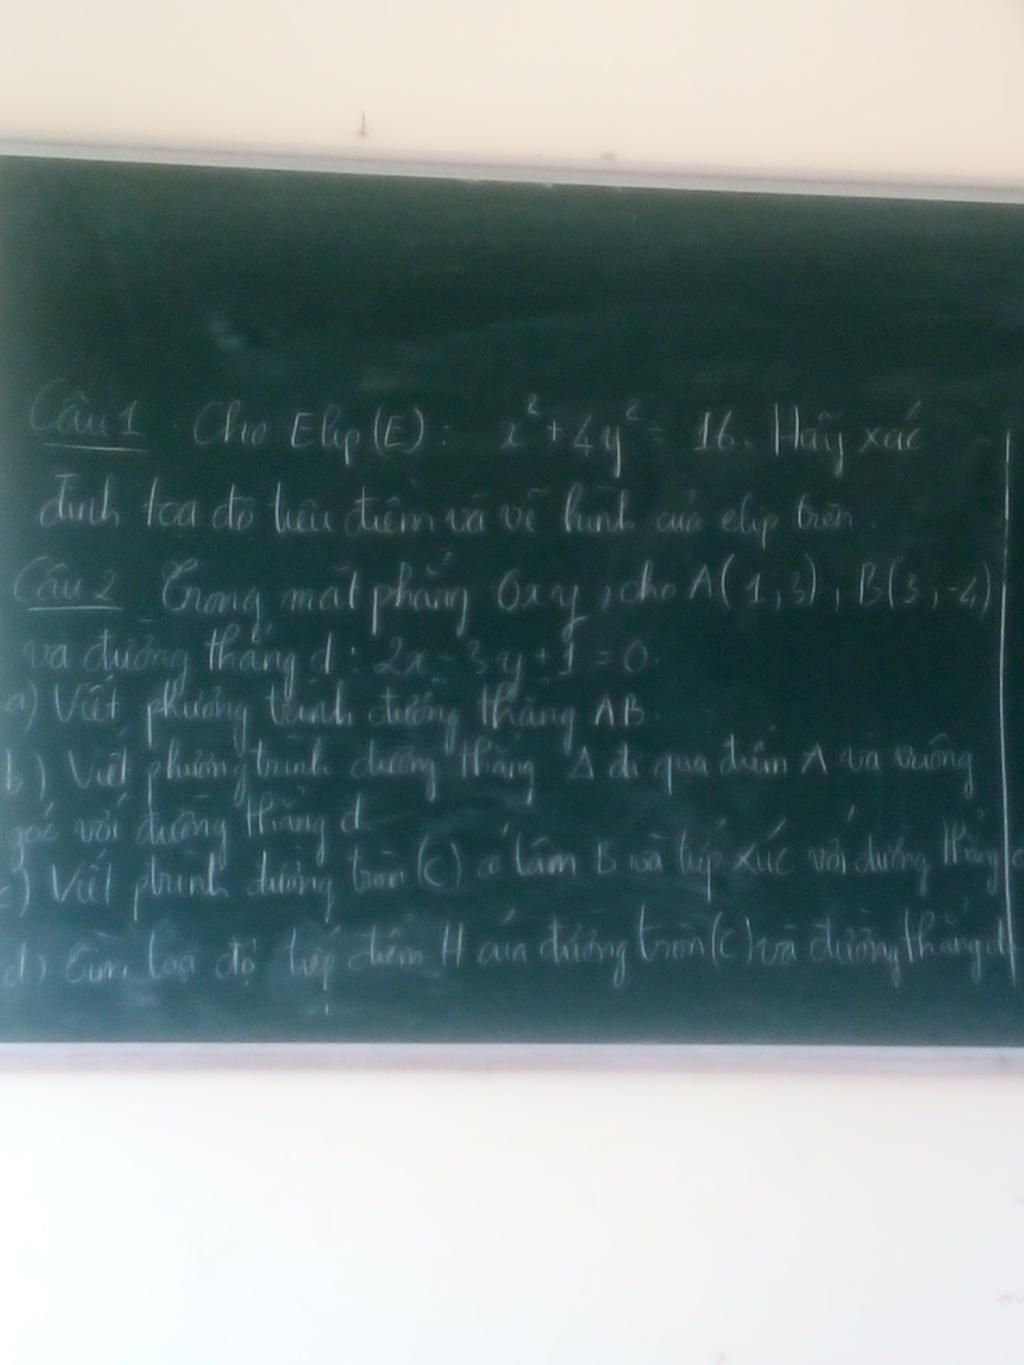 Câu 1 Cho Elip (E): x² + 4y² = 16. Hãy xác
định tọa độ tiêu điểm và vẽ hình của elip trên.
Câu 2 Trong mặt phẳng Oxy, cho A(1,3), B(3,-4)
và đường thẳng d: 2x - 3y + 1 = 0.
a) Viết phương trình đường thẳng AB.
b) Viết phương trình đường thẳng Δ đi qua điểm A và vuông
góc với đường thẳng d.
c) Viết ptrình đường tròn (C) có tâm B và tiếp xúc với đường thẳng d
d) Tìm tọa độ tiếp điểm H của đường tròn (C) và đường thẳng d